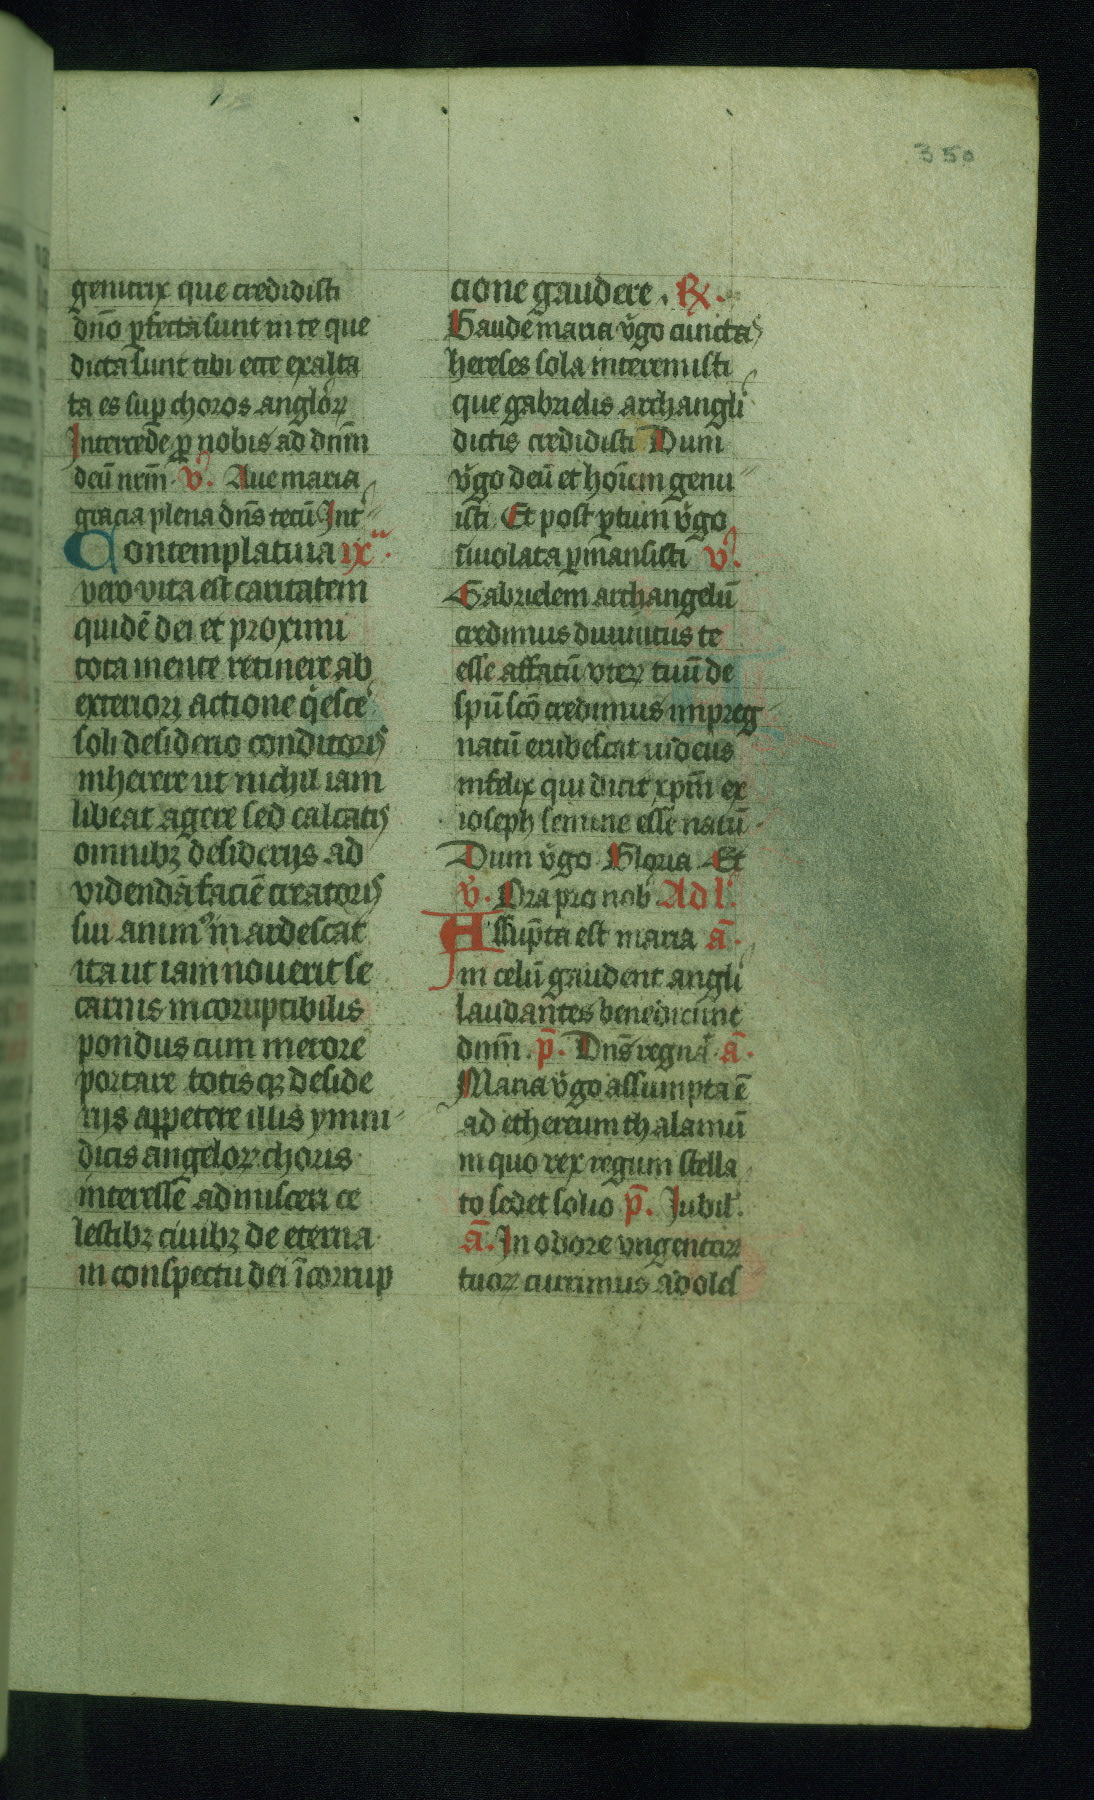 350
genitrix que credidisti
dn̄o ꝑfecta sunt in te que
dicta sunt tibi ecce exalta
ta es suꝑ choros anglorꝝ
Intercede ꝓ nobis ad dn̄m
deū nr̄m v̾. Aue maria
gracia plena dn̄s tecū Int᷎
Contemplatiua ix᷎.
vero vita est caritatem
quidē dei et proximi
tota mente retinere ab
exteriori actione q̇esce᷎
soli desiderio conditoris
inherere ut nichil iam
libeat agere sed calcatis
omnibꝫ desiderijs ad
videndā faciē creatoris
sui animꝰ in ardescat
ita ut iam nouerit se
carnis in corruptibilis
pondus cum merore
portare totisqꝫ deside
rijs appetere illis ymni
dicis angelorꝝ choris
interesse admisceri ce
lestibꝫ ciuibꝫ de eterna
in conspectu dei īcorrup
cione gaudere. ℞.
Gaude maria v̾go cunctas
hereses sola interemisti
que gabrielis archangli
dictis credidisti Dum
v̾go deū et hoīem genu
isti Et post ꝑtum v̾go
inuiolata ꝑmansisti v̾.
Gabrielem archangelū
credimus diuinitus te
esse affatū vterꝝ tuū de
spū scō credimus impreg
natū erubescat iudeus
infelix qui dicit xp̄m ex
ioseph semine esse natū
Dum v̾go Gloria Et
v̾. Ora pro nob᷎ Ad l᷎.
Assūpta est maria ā.
in celū gaudent angli
laudantes benedicunt
dnm̄. p̄. Dn̄s regna᷎ ā.
Maria v̾go assumpta ē
ad ethereum thalamū
in quo rex regum stella
to sedet solio p̄. Iubil᷎.
ā. In odore vngentorꝝ
tuorꝝ currimus adoles